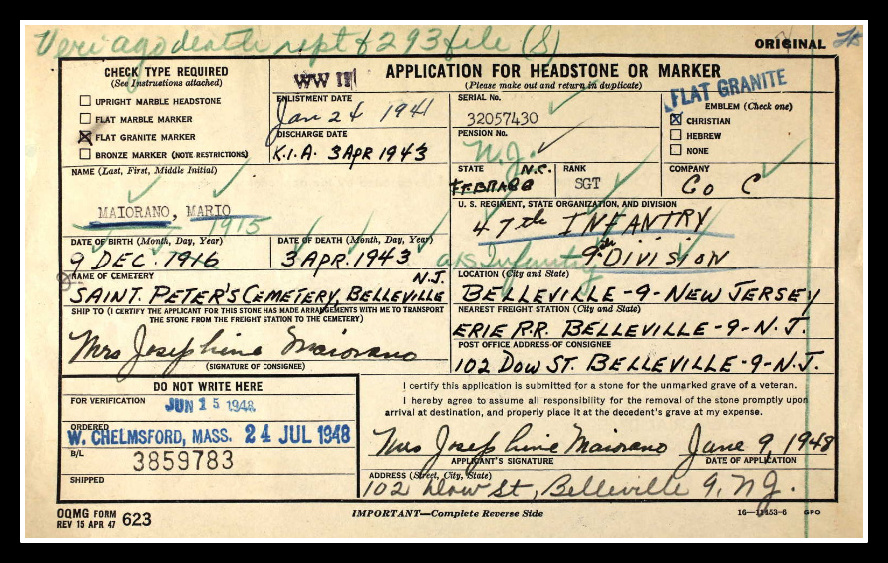 Veri ago death rept & 293 file (S)
ORIGINAL
CHECK TYPE REQUIRED
(See Instructions attached)
UPRIGHT MARBLE HEADSTONE
FLAT MARBLE MARKER
FLAT GRANITE MARKER
BRONZE MARKER (NOTE RESTRICTIONS)
WW II
APPLICATION FOR HEADSTONE OR MARKER
(Please make out and return in duplicate)
FLAT GRANITE
ENLISTMENT DATE
Jan 24 1941
DISCHARGE DATE
K.I.A. 3 APR 1943
SERIAL No.
32057430
PENSION No.
N.J.
EMBLEM (Check one)
CHRISTIAN
HEBREW
NONE
NAME (Last, First, Middle Initial)
MAIORANO, MARIO
1915
STATE N.C.
RANK
SGT
COMPANY
Co C
U. S. REGIMENT, STATE ORGANIZATION, AND DIVISION
47th INFANTRY
9th DIVISION
DATE OF BIRTH (Month, Day, Year)
9 DEC. 1916
DATE OF DEATH (Month, Day, Year)
3 APR. 1943
Infantry
NAME OF CEMETERY
SAINT. PETER'S CEMETERY, BELLEVILLE N.J.
LOCATION (City and State)
BELLEVILLE-9-NEW JERSEY
SHIP TO (I CERTIFY THE APPLICANT FOR THIS STONE HAS MADE ARRANGEMENTS WITH ME TO TRANSPORT
THE STONE FROM THE FREIGHT STATION TO THE CEMETERY)
Mrs Josephine Maiorano
(SIGNATURE OF CONSIGNEE)
NEAREST FREIGHT STATION (City and State)
ERIE R.R. BELLEVILLE-9-N.J.
POST OFFICE ADDRESS OF CONSIGNEE
102 DOW ST. BELLEVILLE-9-N.J.
DO NOT WRITE HERE
FOR VERIFICATION
JUN 15 1948
ORDERED
W. CHELMSFORD, MASS. 24 JUL 1948
B/L
3859783
SHIPPED
I certify this application is submitted for a stone for the unmarked grave of a veteran.
I hereby agree to assume all responsibility for the removal of the stone promptly upon
arrival at destination, and properly place it at the decedent's grave at my expense.
Mrs Josephine Maiorano June 9, 1948
APPLICANT'S SIGNATURE
DATE OF APPLICATION
ADDRESS (Street, City, State)
102 Dow St, Belleville 9, N.J.
OQMG FORM
REV 15 APR 47 623
IMPORTANT—Complete Reverse Side
16—11453-6 GPO